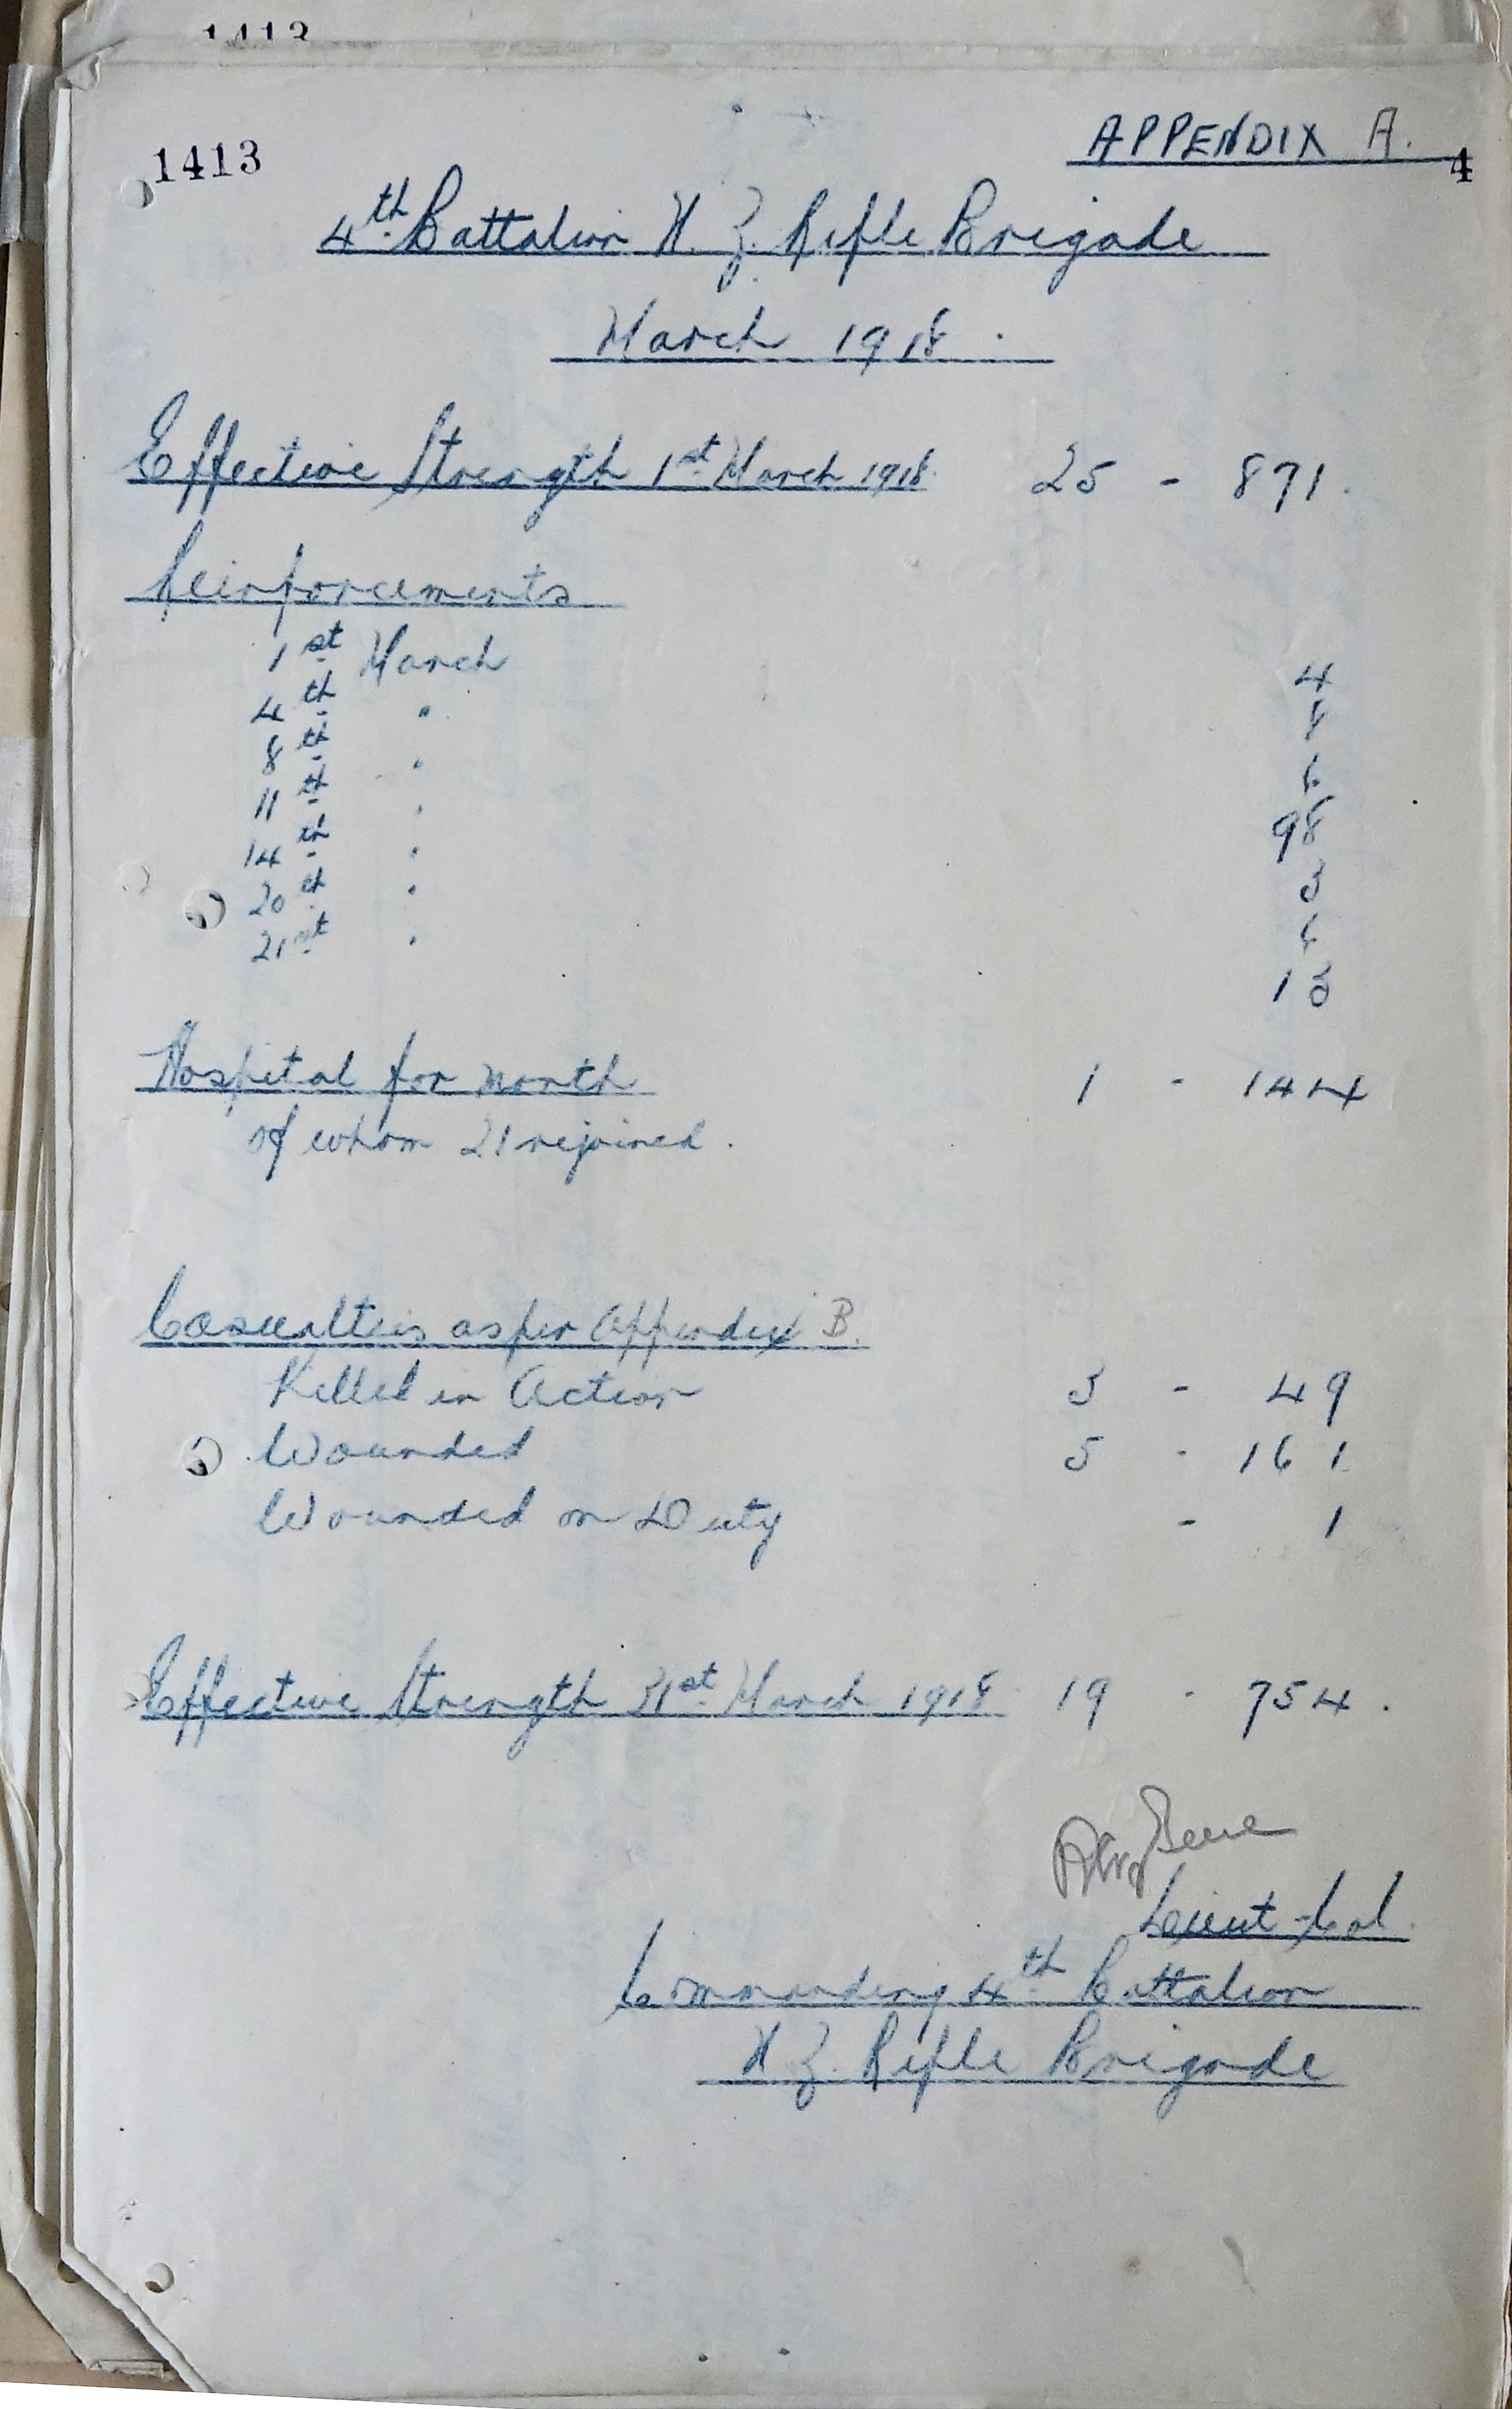 1413
1413
APPENDIX A.
4
4th Battalion N. Z. Rifle Brigade
March 1918.
Effective Strength 1st March 1918. 25 - 871.
Reinforcements
1st March 4
4th " 8
8th " 6
11th " 98
14th " 3
20th " 6
21st " 13
Hospital for month 1 - 144
of whom 21 rejoined.
Casualties as per Appendix B.
Killed in Action 3 - 49
Wounded 5 - 161
Wounded on Duty - 1
Effective Strength 31st March 1918 19 - 754.
Beere
Lieut-Col.
Commanding 4th Battalion
N Z. Rifle Brigade